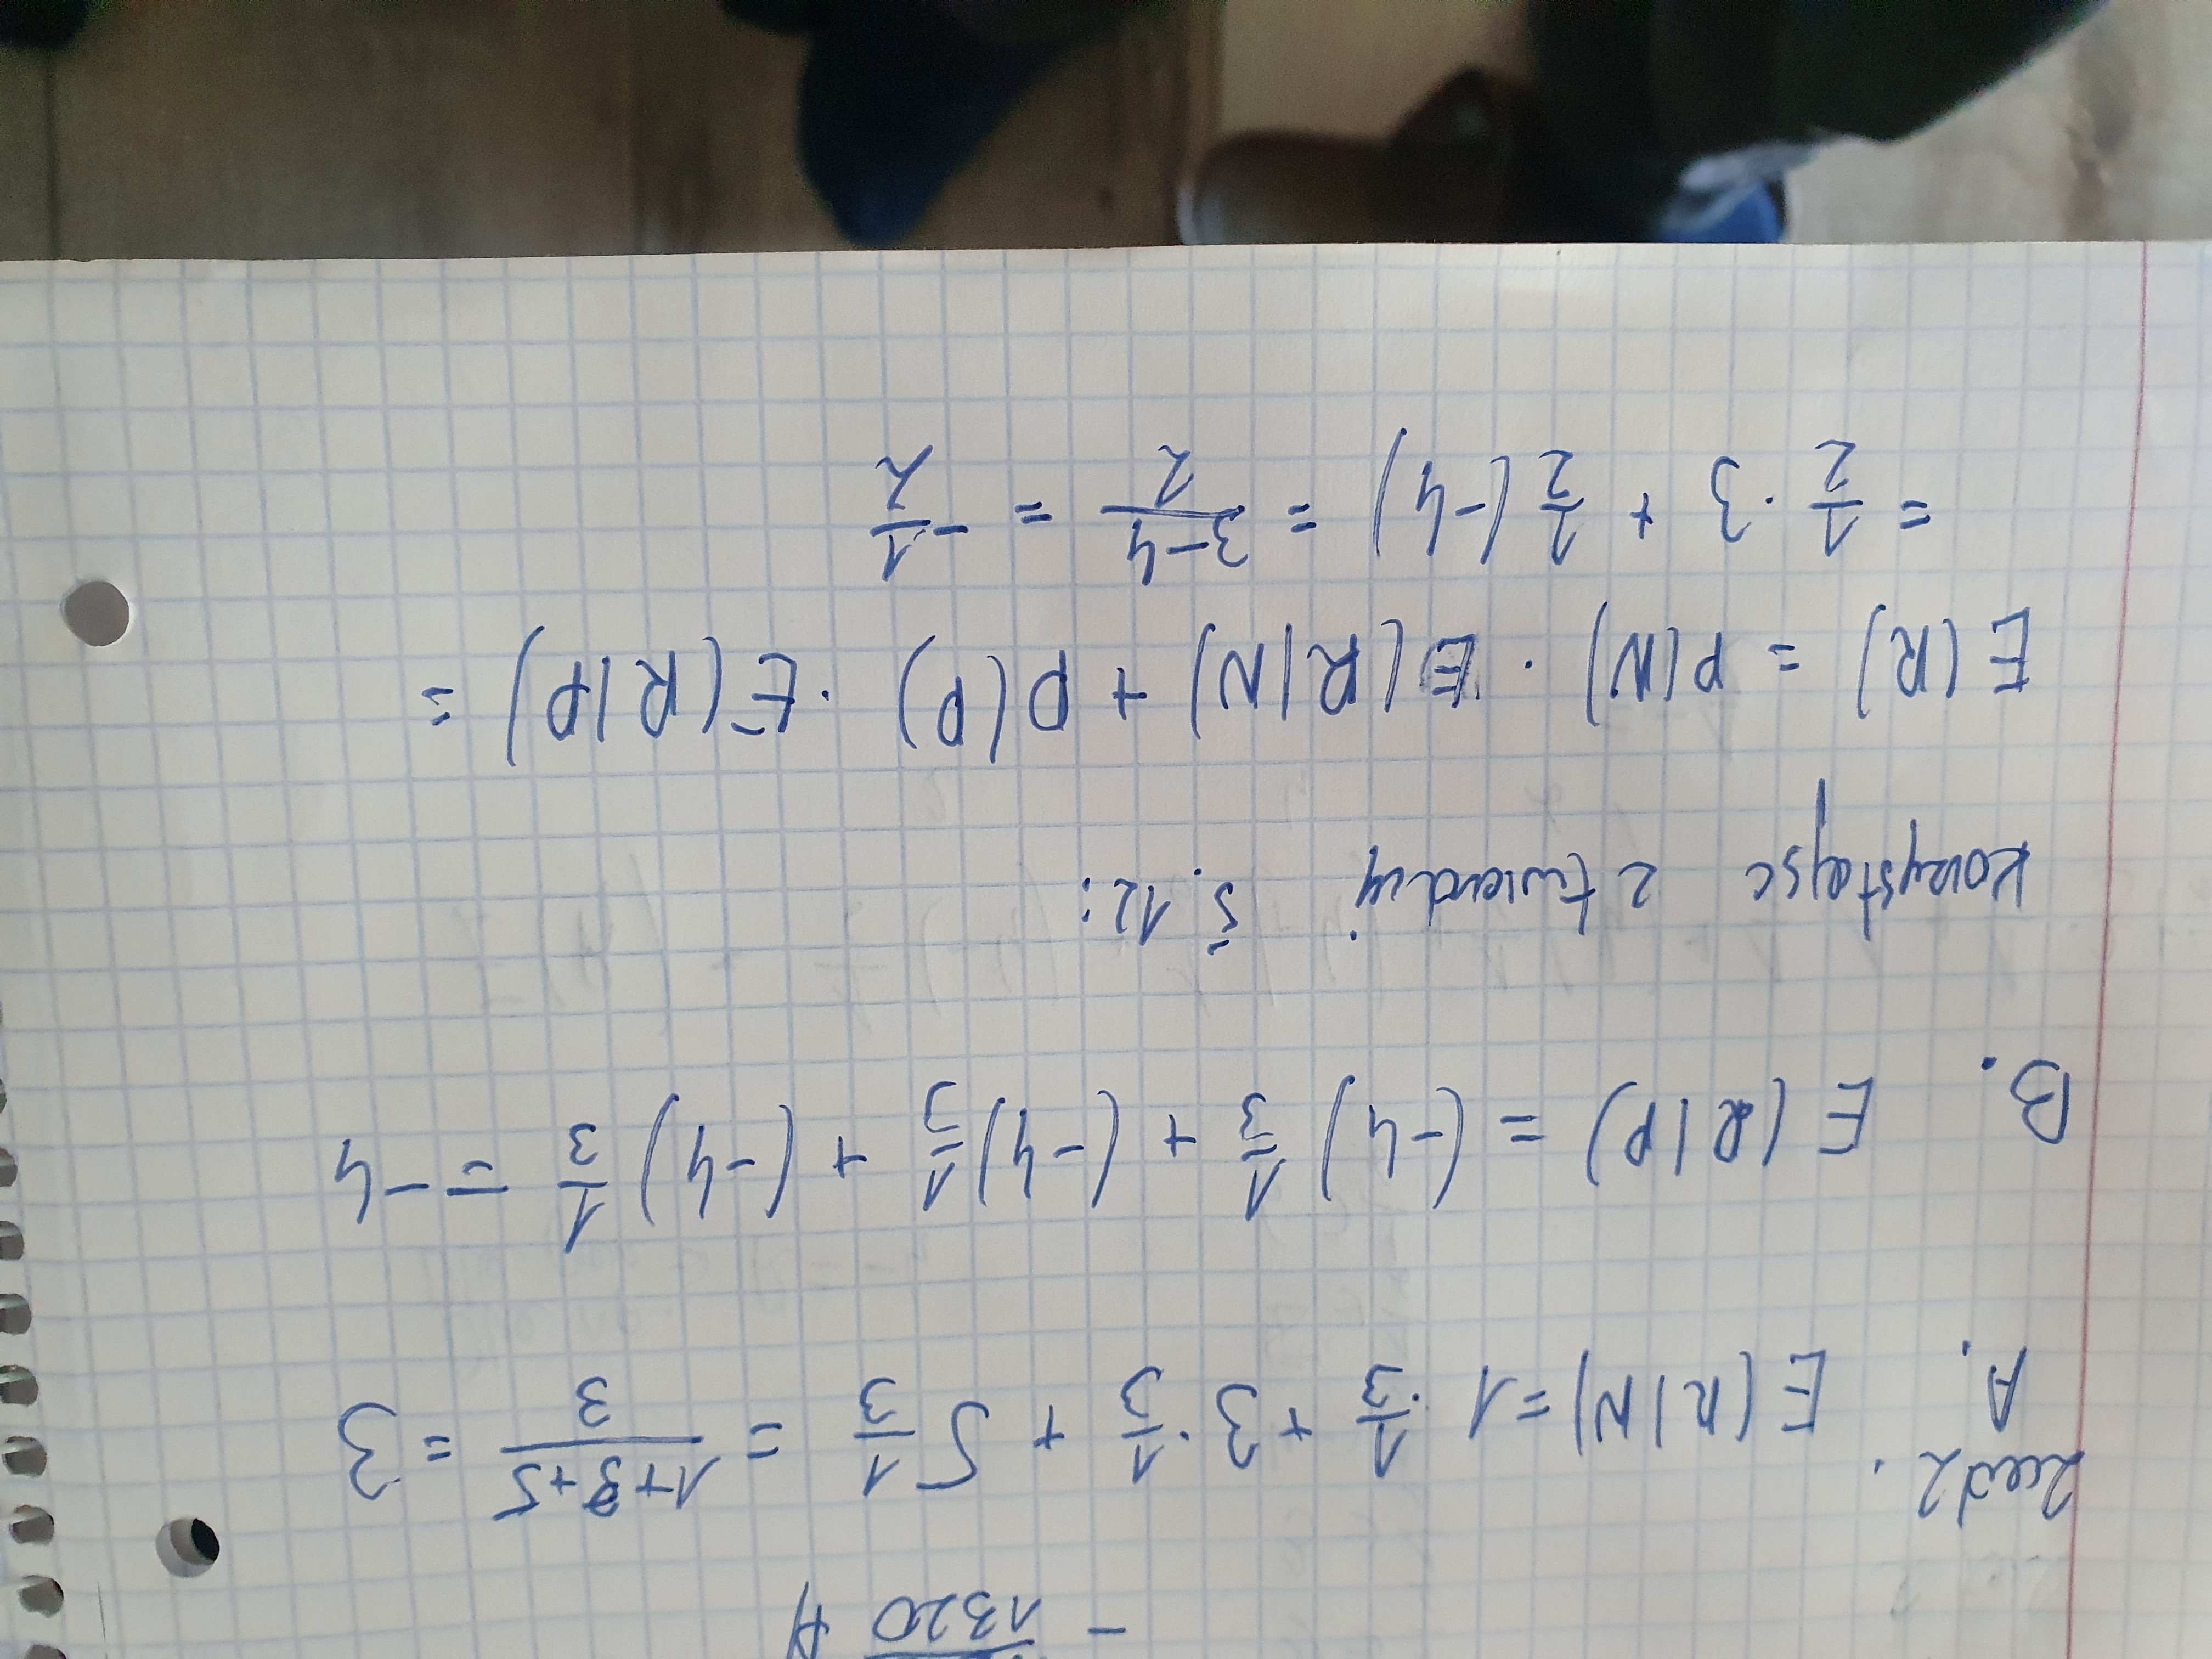 - 1320 A
Zad 2.
A. E(R|N) = 1 · 1/3 + 3 · 1/3 + 5 1/3 = (1+3+5)/3 = 3
B. E(R|P) = (-4) 1/3 + (-4) 1/3 + (-4) 1/3 = -4
Korzystając z 5.12:
E(R) = P(N) · E(R|N) + P(P) · E(R|P) =
= 1/2 · 3 + 1/2 (-4) = (3-4)/2 = -1/2